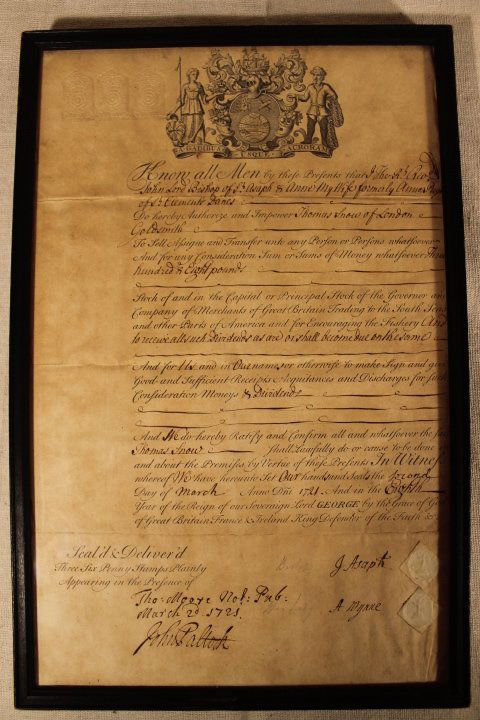 A GADIBUS USQUE AD AURORAM
Know all Men by these Presents that I
John Lord Bishop of St. Asaph & Anne My Wife formaly
of St. Clements Danes
Do hereby Authorize and Impower Thomas Snow of London
Goldsmith
To Sell Assigne and Transfer unto any Person or Persons whatsoever
And for any Consideration Sum or Sums of Money whatsoever
hundred & Eight pounds
Stock of and in the Capital or Principal Stock of the Governor and
Company of Merchants of Great Britain Trading to the South Seas
and other Parts of America and for Encouraging the Fishery And
to receive all such Dividends as are or shall become due on the same
And for Us and in Our names or otherwise to make Sign and give
Good and Sufficient Receipts Acquitances and Discharges for such
Consideration Moneys & Dividends
And We do hereby Ratify and Confirm all and whatsoever the said
Thomas Snow shall Lawfully do or cause to be done
and about the Premisses by Vertue of these Presents In Witness
whereof We have hereunto Set Our hands and Seals the Second
Day of March Anno Dni 1721. And in the Eighth
Year of the Reign of our Sovereign Lord GEORGE by the Grace of
of Great Britain France & Ireland King Defender of the Faith &c
Seal'd & Deliver'd
Three Six Penny Stamps Plainly
Appearing in the Presence of
Tho: Moore Not: Pub:
March 2d. 1721.
J. Asaph
A Wynne
John